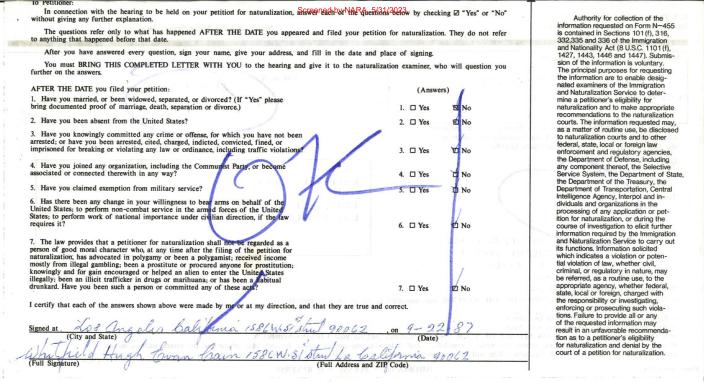 To Petitioner:
Screened by NARA, 5/31/2023
In connection with the hearing to be held on your petition for naturalization, answer each of the questions below by checking ☑ "Yes" or "No"
without giving any further explanation.
The questions refer only to what has happened AFTER THE DATE you appeared and filed your petition for naturalization. They do not refer
to anything that happened before that date.
After you have answered every question, sign your name, give your address, and fill in the date and place of signing.
You must BRING THIS COMPLETED LETTER WITH YOU to the hearing and give it to the naturalization examiner, who will question you
further on the answers.
AFTER THE DATE you filed your petition: (Answers)
1. Have you married, or been widowed, separated, or divorced? (If "Yes" please
bring documented proof of marriage, death, separation or divorce.) 1. ☐ Yes ☑ No
2. Have you been absent from the United States? 2. ☐ Yes ☑ No
3. Have you knowingly committed any crime or offense, for which you have not been
arrested; or have you been arrested, cited, charged, indicted, convicted, fined, or
imprisoned for breaking or violating any law or ordinance, including traffic violations? 3. ☐ Yes ☑ No
4. Have you joined any organization, including the Communist Party, or become
associated or connected therewith in any way? 4. ☐ Yes ☑ No
5. Have you claimed exemption from military service? 5. ☐ Yes ☑ No
6. Has there been any change in your willingness to bear arms on behalf of the
United States; to perform non-combat service in the armed forces of the United
States; to perform work of national importance under civilian direction, if the law
requires it? 6. ☐ Yes ☑ No
7. The law provides that a petitioner for naturalization shall not be regarded as a
person of good moral character who, at any time after the filing of the petition for
naturalization, has advocated in polygamy or been a polygamist; received income
mostly from illegal gambling; been a prostitute or procured anyone for prostitution;
knowingly and for gain encouraged or helped an alien to enter the United States
illegally; been an illicit trafficker in drugs or marihuana; or has been a habitual
drunkard. Have you been such a person or committed any of these acts? 7. ☐ Yes ☑ No
OK
I certify that each of the answers shown above were made by me or at my direction, and that they are true and correct.
Signed at Los Angeles California 1586 W. 51 street 90062, on 9-22-87
(City and State) (Date)
Whitfield Hugh Evan Crain 1586 W. 51 street La California 90062
(Full Signature) (Full Address and ZIP Code)
Authority for collection of the
information requested on Form N-455
is contained in Sections 101(f), 316,
332, 335 and 336 of the Immigration
and Nationality Act (8 U.S.C. 1101(f),
1427, 1443, 1446 and 1447). Submis-
sion of the information is voluntary.
The principal purposes for requesting
the information are to enable desig-
nated examiners of the Immigration
and Naturalization Service to deter-
mine a petitioner's eligibility for
naturalization and to make appropriate
recommendations to the naturalization
courts. The information requested may,
as a matter of routine use, be disclosed
to naturalization courts and to other
federal, state, local or foreign law
enforcement and regulatory agencies,
the Department of Defense, including
any component thereof, the Selective
Service System, the Department of State,
the Department of the Treasury, the
Department of Transportation, Central
Intelligence Agency, Interpol and in-
dividuals and organizations in the
processing of any application or pet-
ition for naturalization, or during the
course of investigation to elicit further
information required by the Immigration
and Naturalization Service to carry out
its functions. Information solicited
which indicates a violation or poten-
tial violation of law, whether civil,
criminal, or regulatory in nature, may
be referred, as a routine use, to the
appropriate agency, whether federal,
state, local or foreign, charged with
the responsibility of investigating,
enforcing or prosecuting such viola-
tions. Failure to provide all or any
of the requested information may
result in an unfavorable recommenda-
tion as to a petitioner's eligibility
for naturalization and denial by the
court of a petition for naturalization.